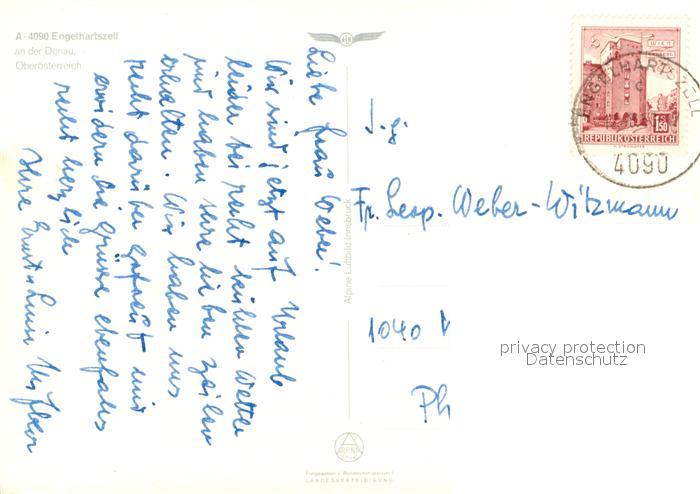 A-4090 Engelhartszell
an der Donau,
Oberösterreich
Liebe Frau Weber!
Wir sind jetzt auf Urlaub
leider bei recht kühlem Wetter
und haben Ihre lieben Zeilen
erhalten. Wir haben uns
recht darüber gefreut und
erwidern die Grüsse ebenfalls
recht herzlich
Ihre
Alpine Luftbild Innsbruck
Fr. Leop. Weber-Witzmann
1040 W
Ph
WIEN
1.50
REPUBLIK ÖSTERREICH
ENGELHARTSZELL
4090
privacy protection
Datenschutz
Freigegeben v. Bundesministerium f.
LANDESVERTEIDIGUNG